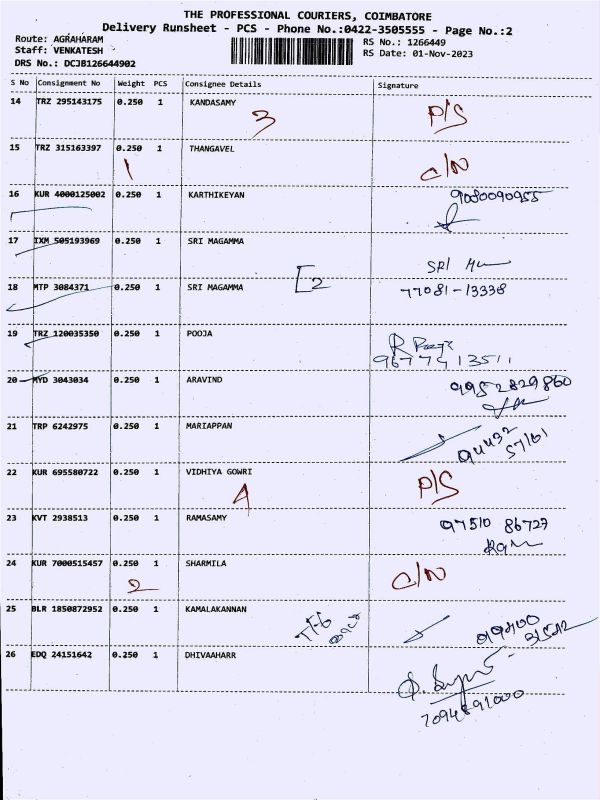 THE PROFESSIONAL COURIERS, COIMBATORE
Delivery Runsheet - PCS - Phone No.:0422-3505555 - Page No.:2
Route: AGRAHARAM
Staff: VENKATESH
DRS No.: DCJB126644902
RS No.: 1266449
RS Date: 01-Nov-2023
S No Consignment No Weight PCS Consignee Details Signature
14 TRZ 295143175 0.250 1 KANDASAMY P/S
3
15 TRZ 315163397 0.250 1 THANGAVEL C/N
1
16 KUR 4000125002 0.250 1 KARTHIKEYAN 9080090955
17 IXM 505193969 0.250 1 SRI MAGAMMA
SRI
18 MTP 3084371 0.250 1 SRI MAGAMMA [2 77081-13338
19 TRZ 120035350 0.250 1 POOJA
9677413511
20 MYD 3043034 0.250 1 ARAVIND 9952829860
21 TRP 6242975 0.250 1 MARIAPPAN 94432
57161
22 KUR 695580722 0.250 1 VIDHIYA GOWRI P/S
4
23 KVT 2938513 0.250 1 RAMASAMY 97510 86727
24 KUR 7000515457 0.250 1 SHARMILA C/N
2
25 BLR 1850872952 0.250 1 KAMALAKANNAN
26 EDQ 24151642 0.250 1 DHIVAAHARR
7094891000